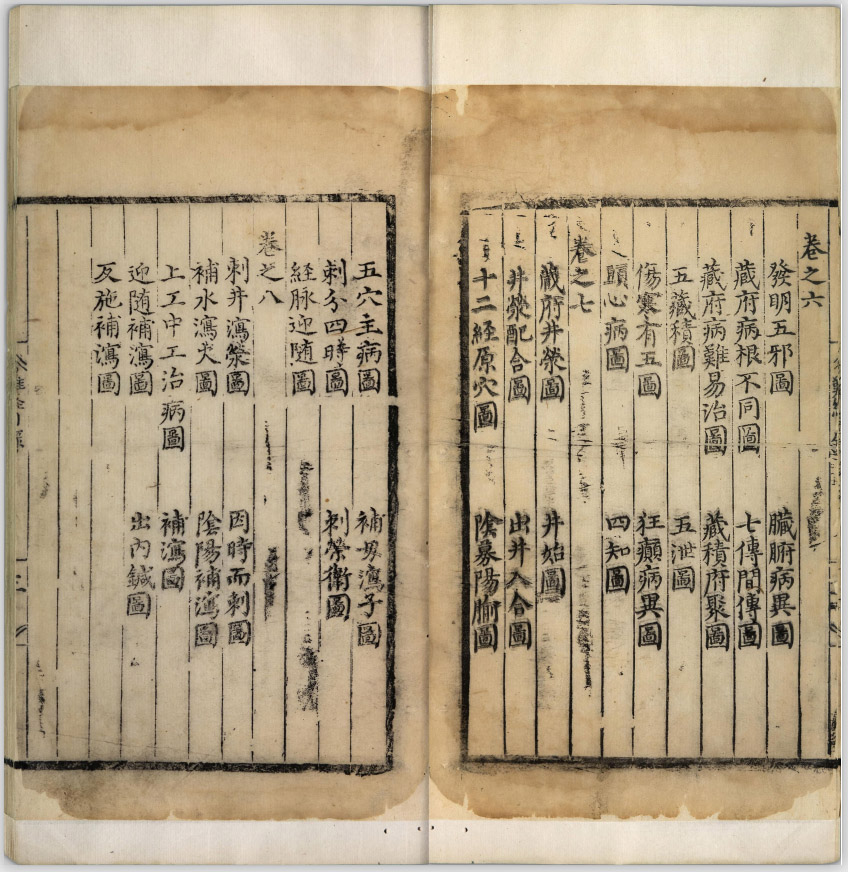 卷之六
發明五邪圖 臟腑病異圖
藏府病根不同圖 七傳間傳圖
藏府病難易治圖 藏積府聚圖
五藏積圖 五泄圖
傷寒有五圖 狂癲病異圖
頭心病圖 四知圖
卷之七
藏府井滎圖 井始圖
井滎配合圖 出井入合圖
十二経原穴圖 隂募陽腧圖
五穴主病圖 補母瀉子圖
刺分四時圖 刺榮衛圖
経脉迎随圖
卷之八
刺井瀉滎圖 因時而刺圖
補水瀉火圖 隂陽補瀉圖
上工中工治病圖 補瀉圖
迎随補瀉圖 出内鍼圖
反施補瀉圖